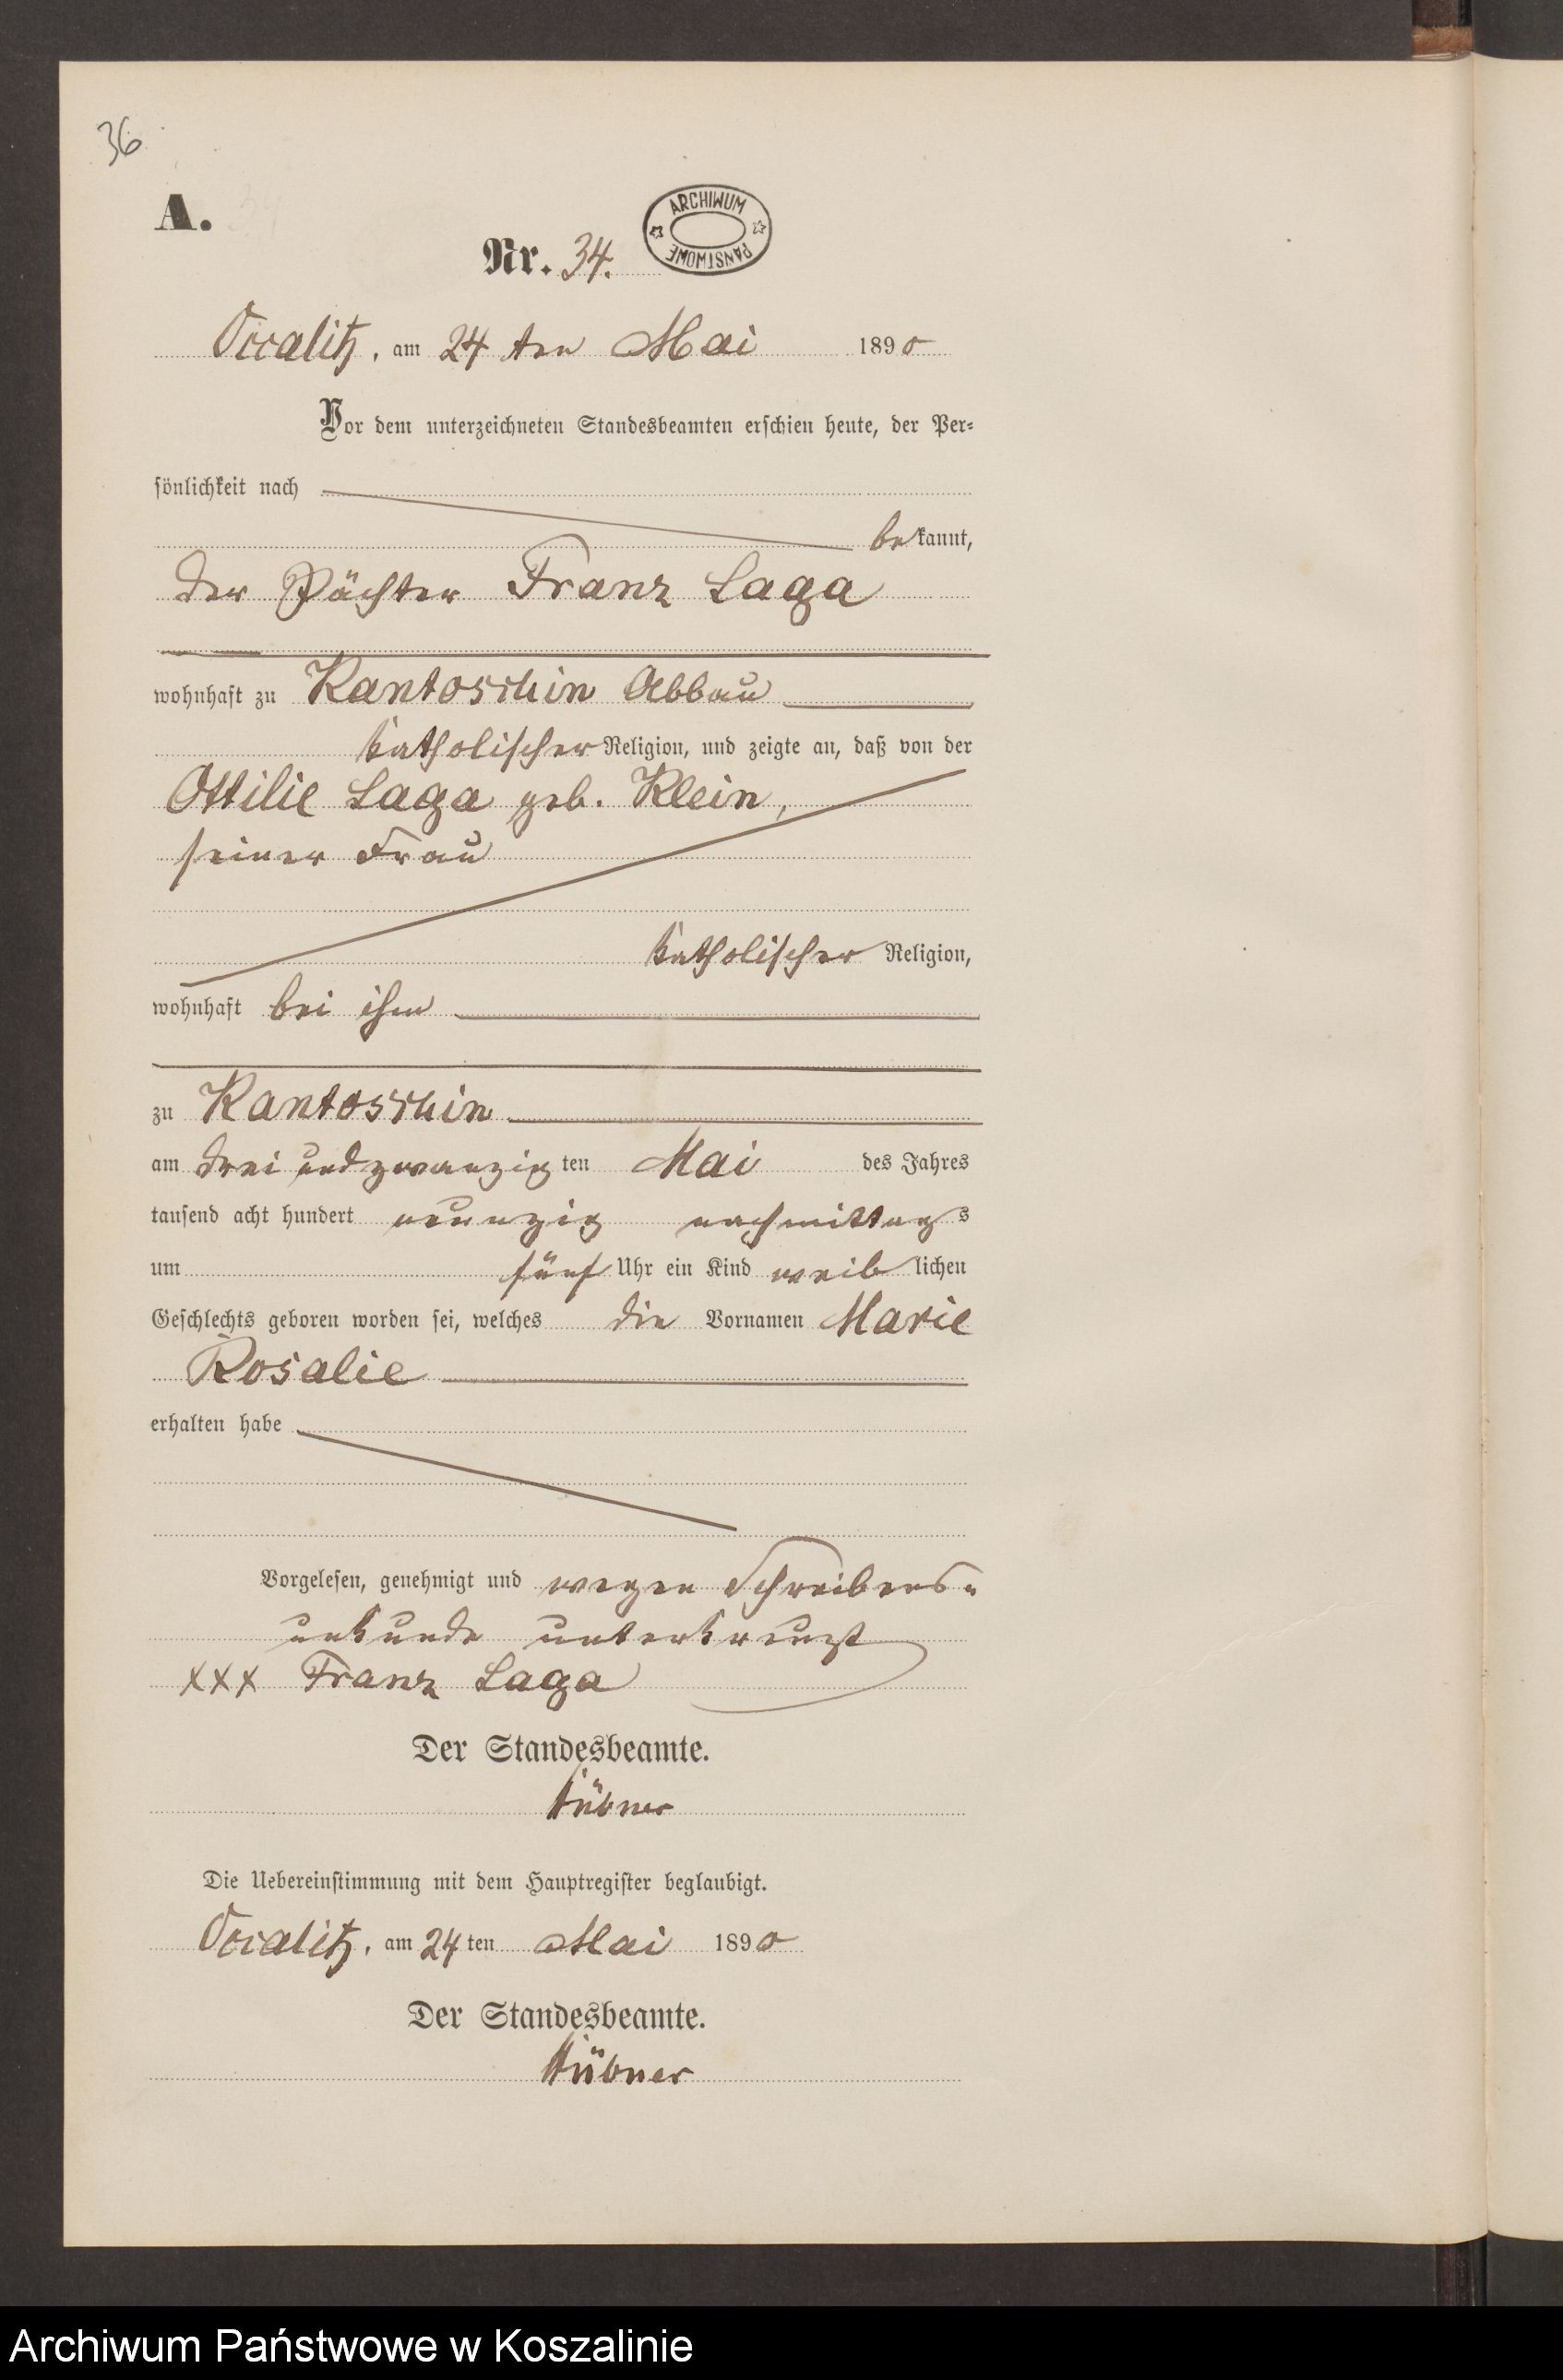 36
A.
ARCHIWUM
PAŃSTWOWE
Nr. 34.
Occalitz, am 24 ten Mai 1890
Vor dem unterzeichneten Standesbeamten erschien heute, der Per-
sönlichkeit nach
bekannt,
der Pächter Franz Laga
wohnhaft zu Kantoschin Abbau
katholischer Religion, und zeigte an, daß von der
Ottilie Laga geb. Klein,
seiner Frau
katholischer Religion,
wohnhaft bei ihm
zu Kantoschin
am drei und zwanzig ten Mai des Jahres
tausend acht hundert neunzig nachmittags
um fünf Uhr ein Kind weiblichen
Geschlechts geboren worden sei, welches die Vornamen Marie
Rosalie
erhalten habe
Vorgelesen, genehmigt und wegen Schreibens-
unkunde unterkreuzt
XXX Franz Laga
Der Standesbeamte.
Hübner
Die Uebereinstimmung mit dem Hauptregister beglaubigt.
Occalitz, am 24 ten Mai 1890
Der Standesbeamte.
Hübner
Archiwum Państwowe w Koszalinie